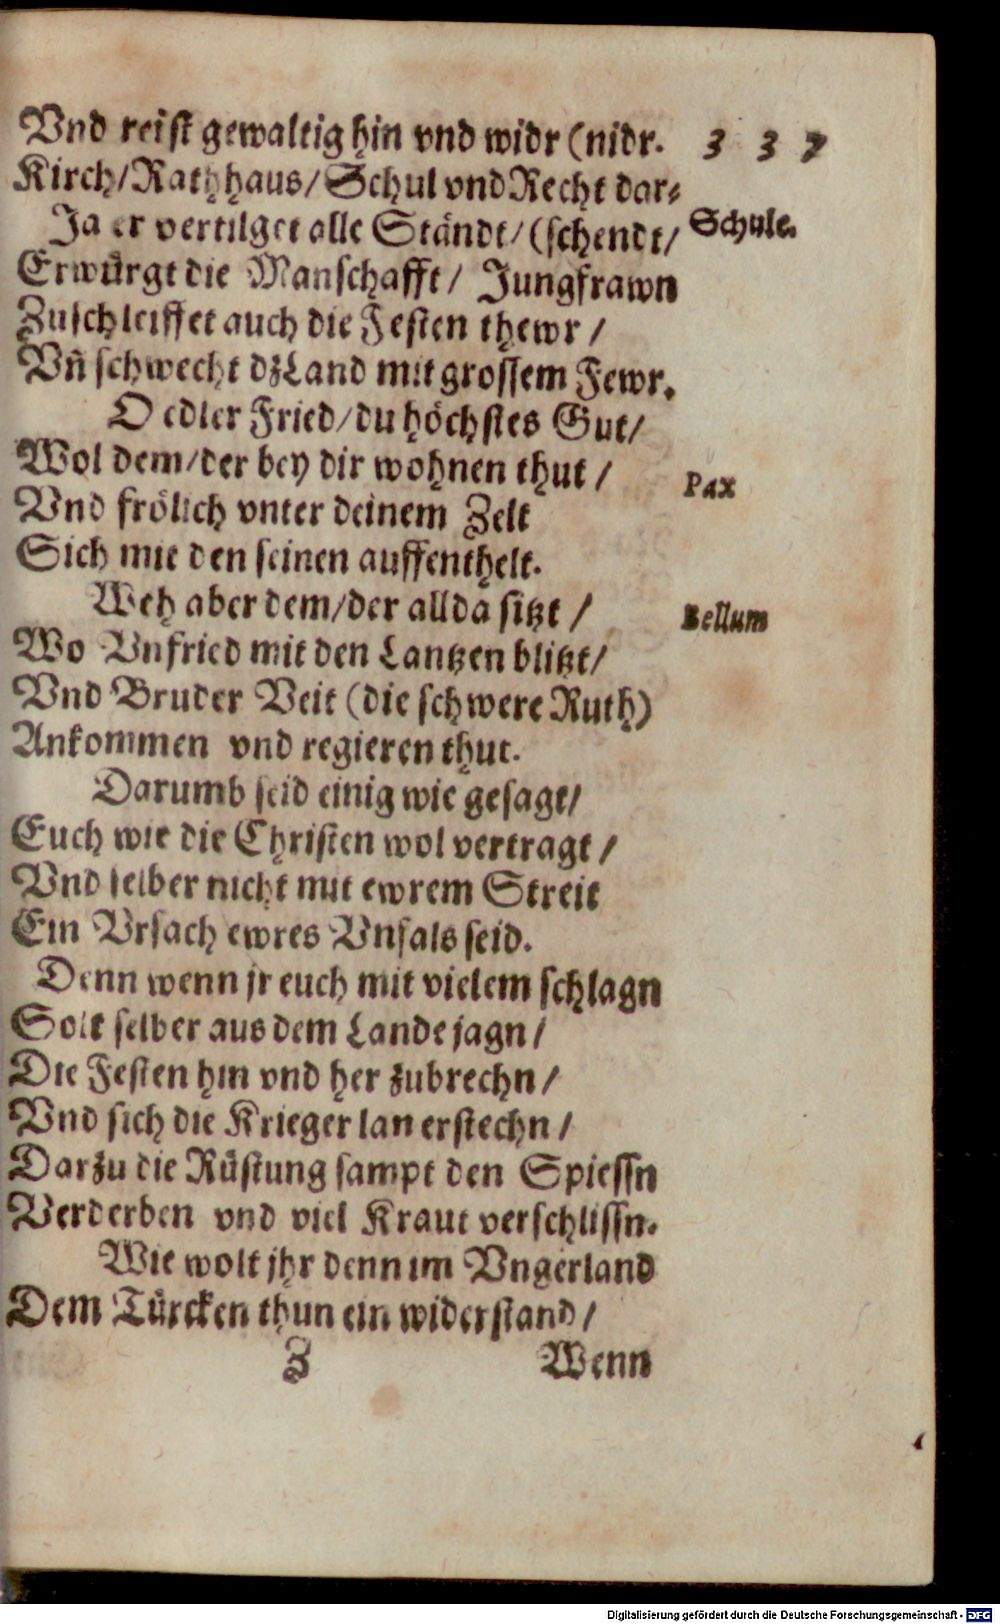 Vnd reiſt gewaltig hin vnd widr (nidr. 337
Kirch/Rathhaus/Schul vnd Recht dar⸗
Ja er vertilget alle Ständt/(ſchendt/ Schule.
Erwürgt die Manſchafft/ Jungfrawn
Zuſchleiffet auch die Feſten thewr/
Vñ ſchwecht dz Land mit groſſem Fewr.
O edler Fried/du höchſtes Gut/
Wol dem/der bey dir wohnen thut/ Pax
Vnd frölich vnter deinem Zelt
Sich mit den ſeinen auffenthelt.
Weh aber dem/der allda ſitzt/ Bellum
Wo Vnfried mit den Lantzen blitzt/
Vnd Bruder Veit (die ſchwere Ruth)
Ankommen vnd regieren thut.
Darumb ſeid einig wie geſagt/
Euch wie die Chriſten wol vertragt/
Vnd ſelber nicht mit ewrem Streit
Ein Vrſach ewres Vnfals ſeid.
Denn wenn jr euch mit vielem ſchlagn
Solt ſelber aus dem Lande jagn/
Die Feſten hin vnd her zubrechn/
Vnd ſich die Krieger lan erſtechn/
Darzu die Rüſtung ſampt den Spieſſn
Verderben vnd viel Kraut verſchliſſn.
Wie wolt jhr denn im Vngerland
Dem Türcken thun ein widerſtand/
Z Wenn
Digitalisierung gefördert durch die Deutsche Forschungsgemeinschaft - DFG